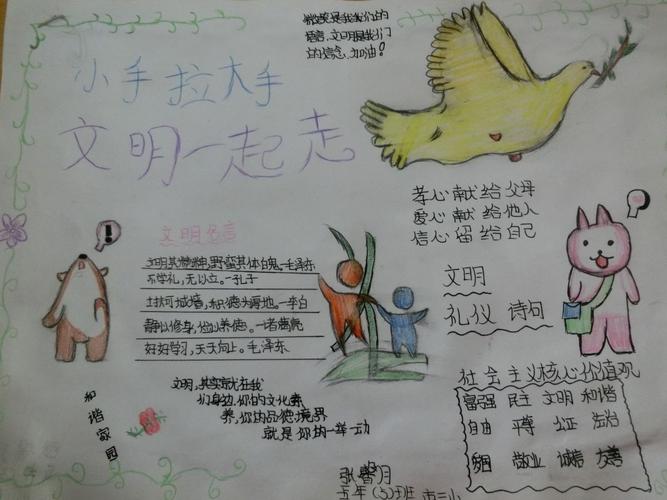 微笑是我们的
语言,文明是我们
的信念,加油!
小手拉大手
文明一起走
孝心献给父母
爱心献给他人
信心留给自己
文明名言
文明其精神,野蛮其体魄。毛泽东
不学礼,无以立。孔子
土扶可城墙,积德为厚地。李白
静以修身,俭以养德。诸葛亮
好好学习,天天向上。毛泽东
文明
礼仪 诗句
文明,其实就在我
们身边,你的文化素
养,你的品德境界
就是你的一举一动
和谐家园
社会主义核心价值观
富强 民主 文明 和谐
自由 平等 公正 法治
敬业 诚信 友善
五年(3)班 市二小